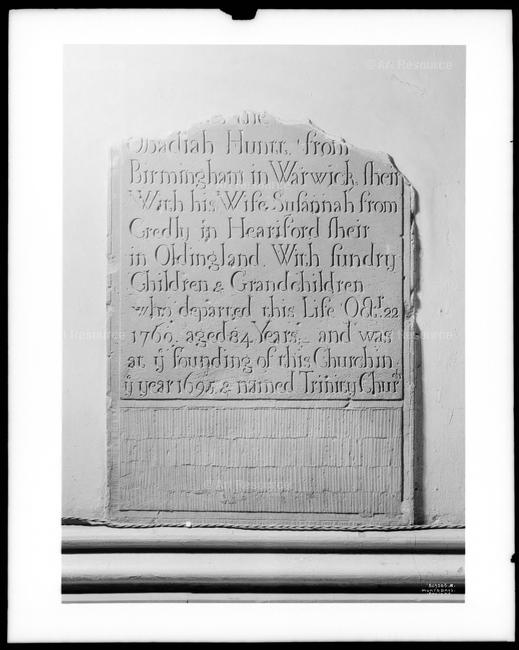 the
Obadiah Hunt, from
Birmingham in Warwick, sheir
With his Wife Susannah from
Credly in Heariford sheir
in Oldingland, With sundry
Children & Grandchildren
who departed this Life Octr. 22
1760, aged 84 Years, and was
at ye founding of this Church in
ye year 1695 & named Trinity Church
Art Resource